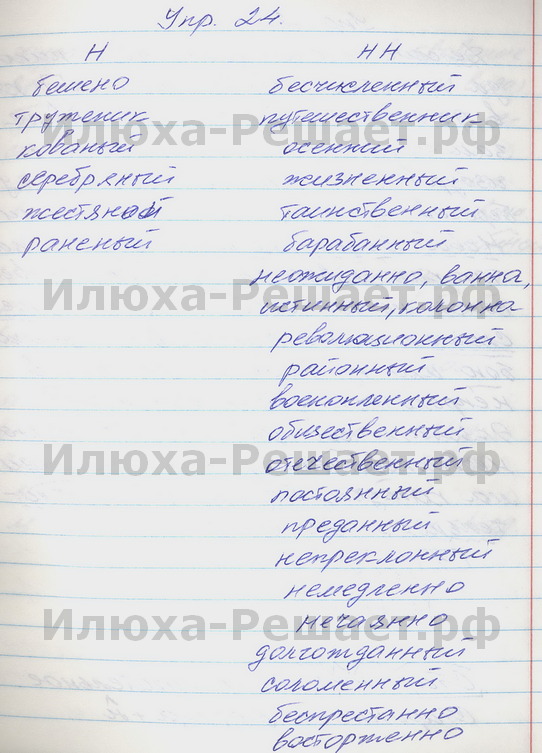 Упр. 24.
Н НН
бешено бесчисленный
труженик путешественник
кованый осенний
серебряный жизненный
жестяной таинственный
раненый барабанный
неожиданно, ванна,
истинный, колонна
революционный
районный
военнопленный
общественный
отечественный
постоянный
преданный
непреклонный
немедленно
нечаянно
долгожданный
соломенный
беспрестанно
восторженно
Илюха-Решает.рф
Илюха-Решает.рф
Илюха-Решает.рф
Илюха-Решает.рф